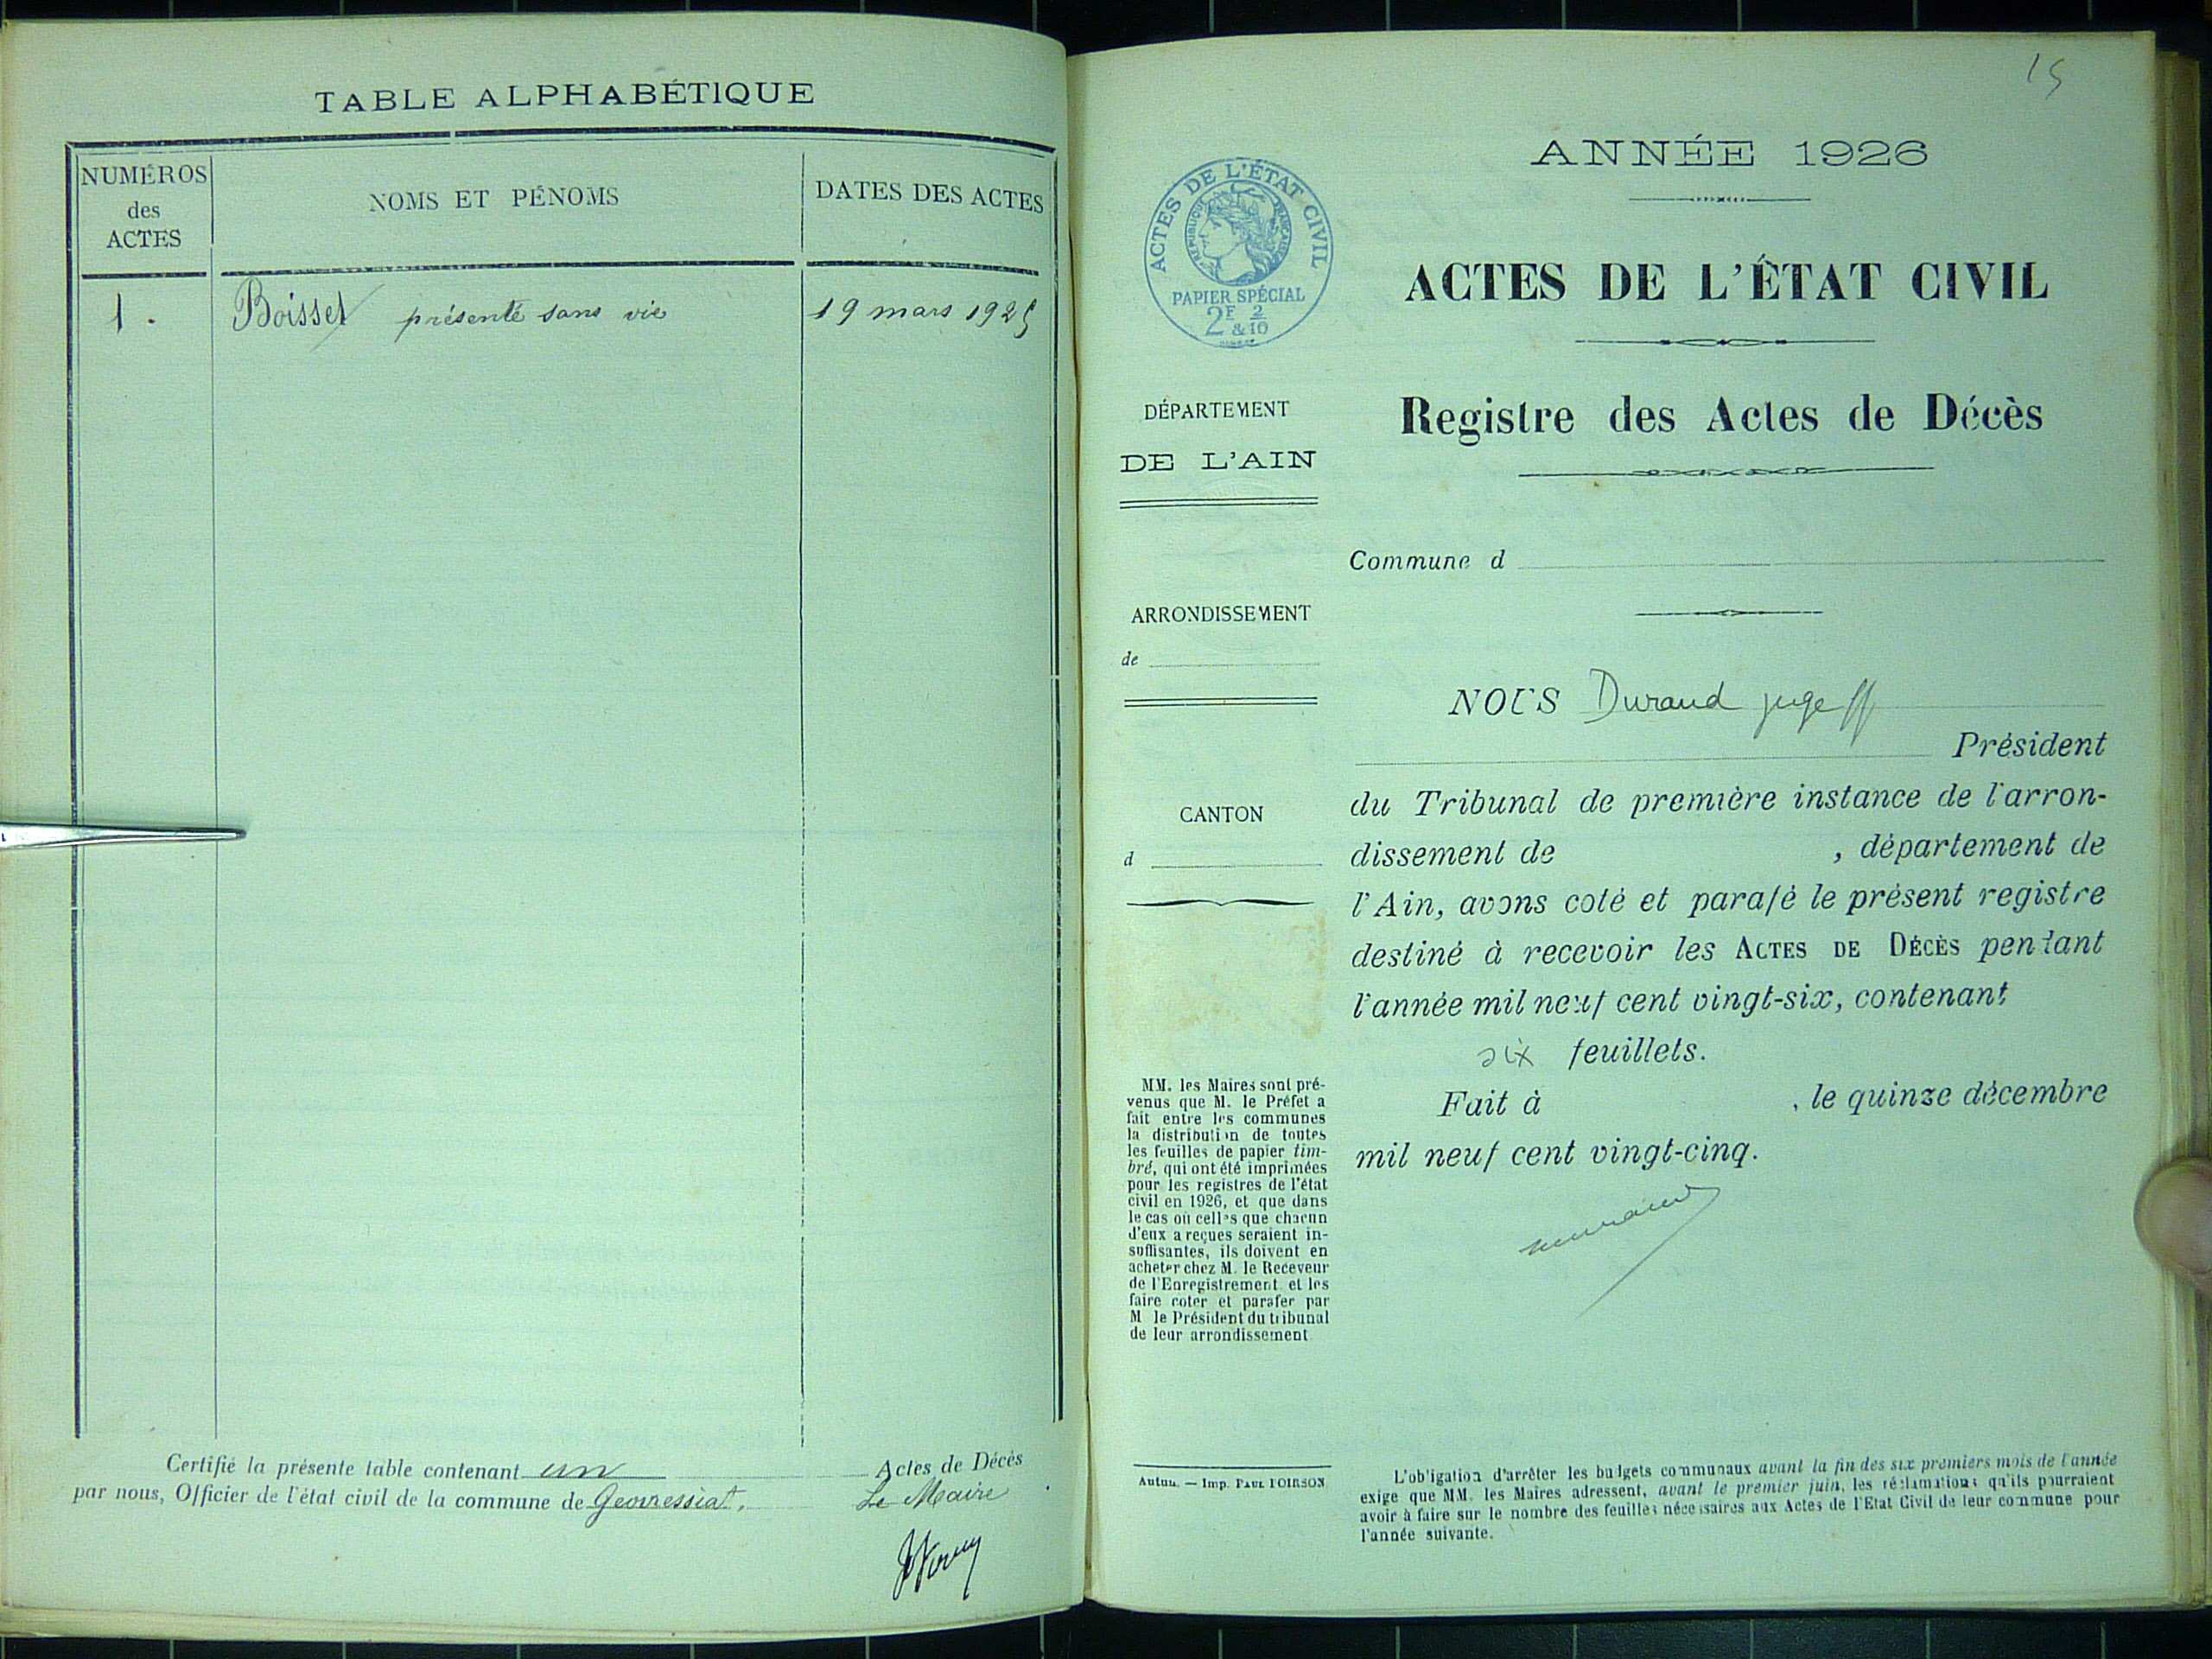 TABLE ALPHABÉTIQUE
NUMÉROS
des
ACTES
NOMS ET PÉNOMS
DATES DES ACTES
1. Boisset présenté sans vie 19 mars 1925
Certifié la présente table contenant un Actes de Décès
par nous, Officier de l'état civil de la commune de Geovressiat, Le Maire
15
ANNÉE 1926
ACTES DE L'ÉTAT CIVIL
RÉPUBLIQUE FRANÇAISE
PAPIER SPÉCIAL
2F 2
& 10
ACTES DE L'ÉTAT CIVIL
Registre des Actes de Décès
DÉPARTEMENT
DE L'AIN
Commune d
ARRONDISSEMENT
de
CANTON
d
NOUS Durand juge ff
Président
du Tribunal de première instance de l'arron-
dissement de , département de
l'Ain, avons coté et parafé le présent registre
destiné à recevoir les ACTES DE DÉCÈS pendant
l'année mil neuf cent vingt-six, contenant
six feuillets.
Fait à , le quinze décembre
mil neuf cent vingt-cinq.
MM. les Maires sont pré-
venus que M. le Préfet a
fait entre les communes
la distribution de toutes
les feuilles de papier tim-
bré, qui ont été imprimées
pour les registres de l'état
civil en 1926, et que dans
le cas où celles que chacun
d'eux a reçues seraient in-
suffisantes, ils doivent en
acheter chez M. le Receveur
de l'Enregistrement et les
faire coter et parafer par
M le Président du tribunal
de leur arrondissement
Autun. — Imp. PAUL POIRSON
L'obligation d'arrêter les budgets communaux avant la fin des six premiers mois de l'année
exige que MM. les Maires adressent, avant le premier juin, les réclamations qu'ils pourraient
avoir à faire sur le nombre des feuilles nécessaires aux Actes de l'Etat Civil de leur commune pour
l'année suivante.